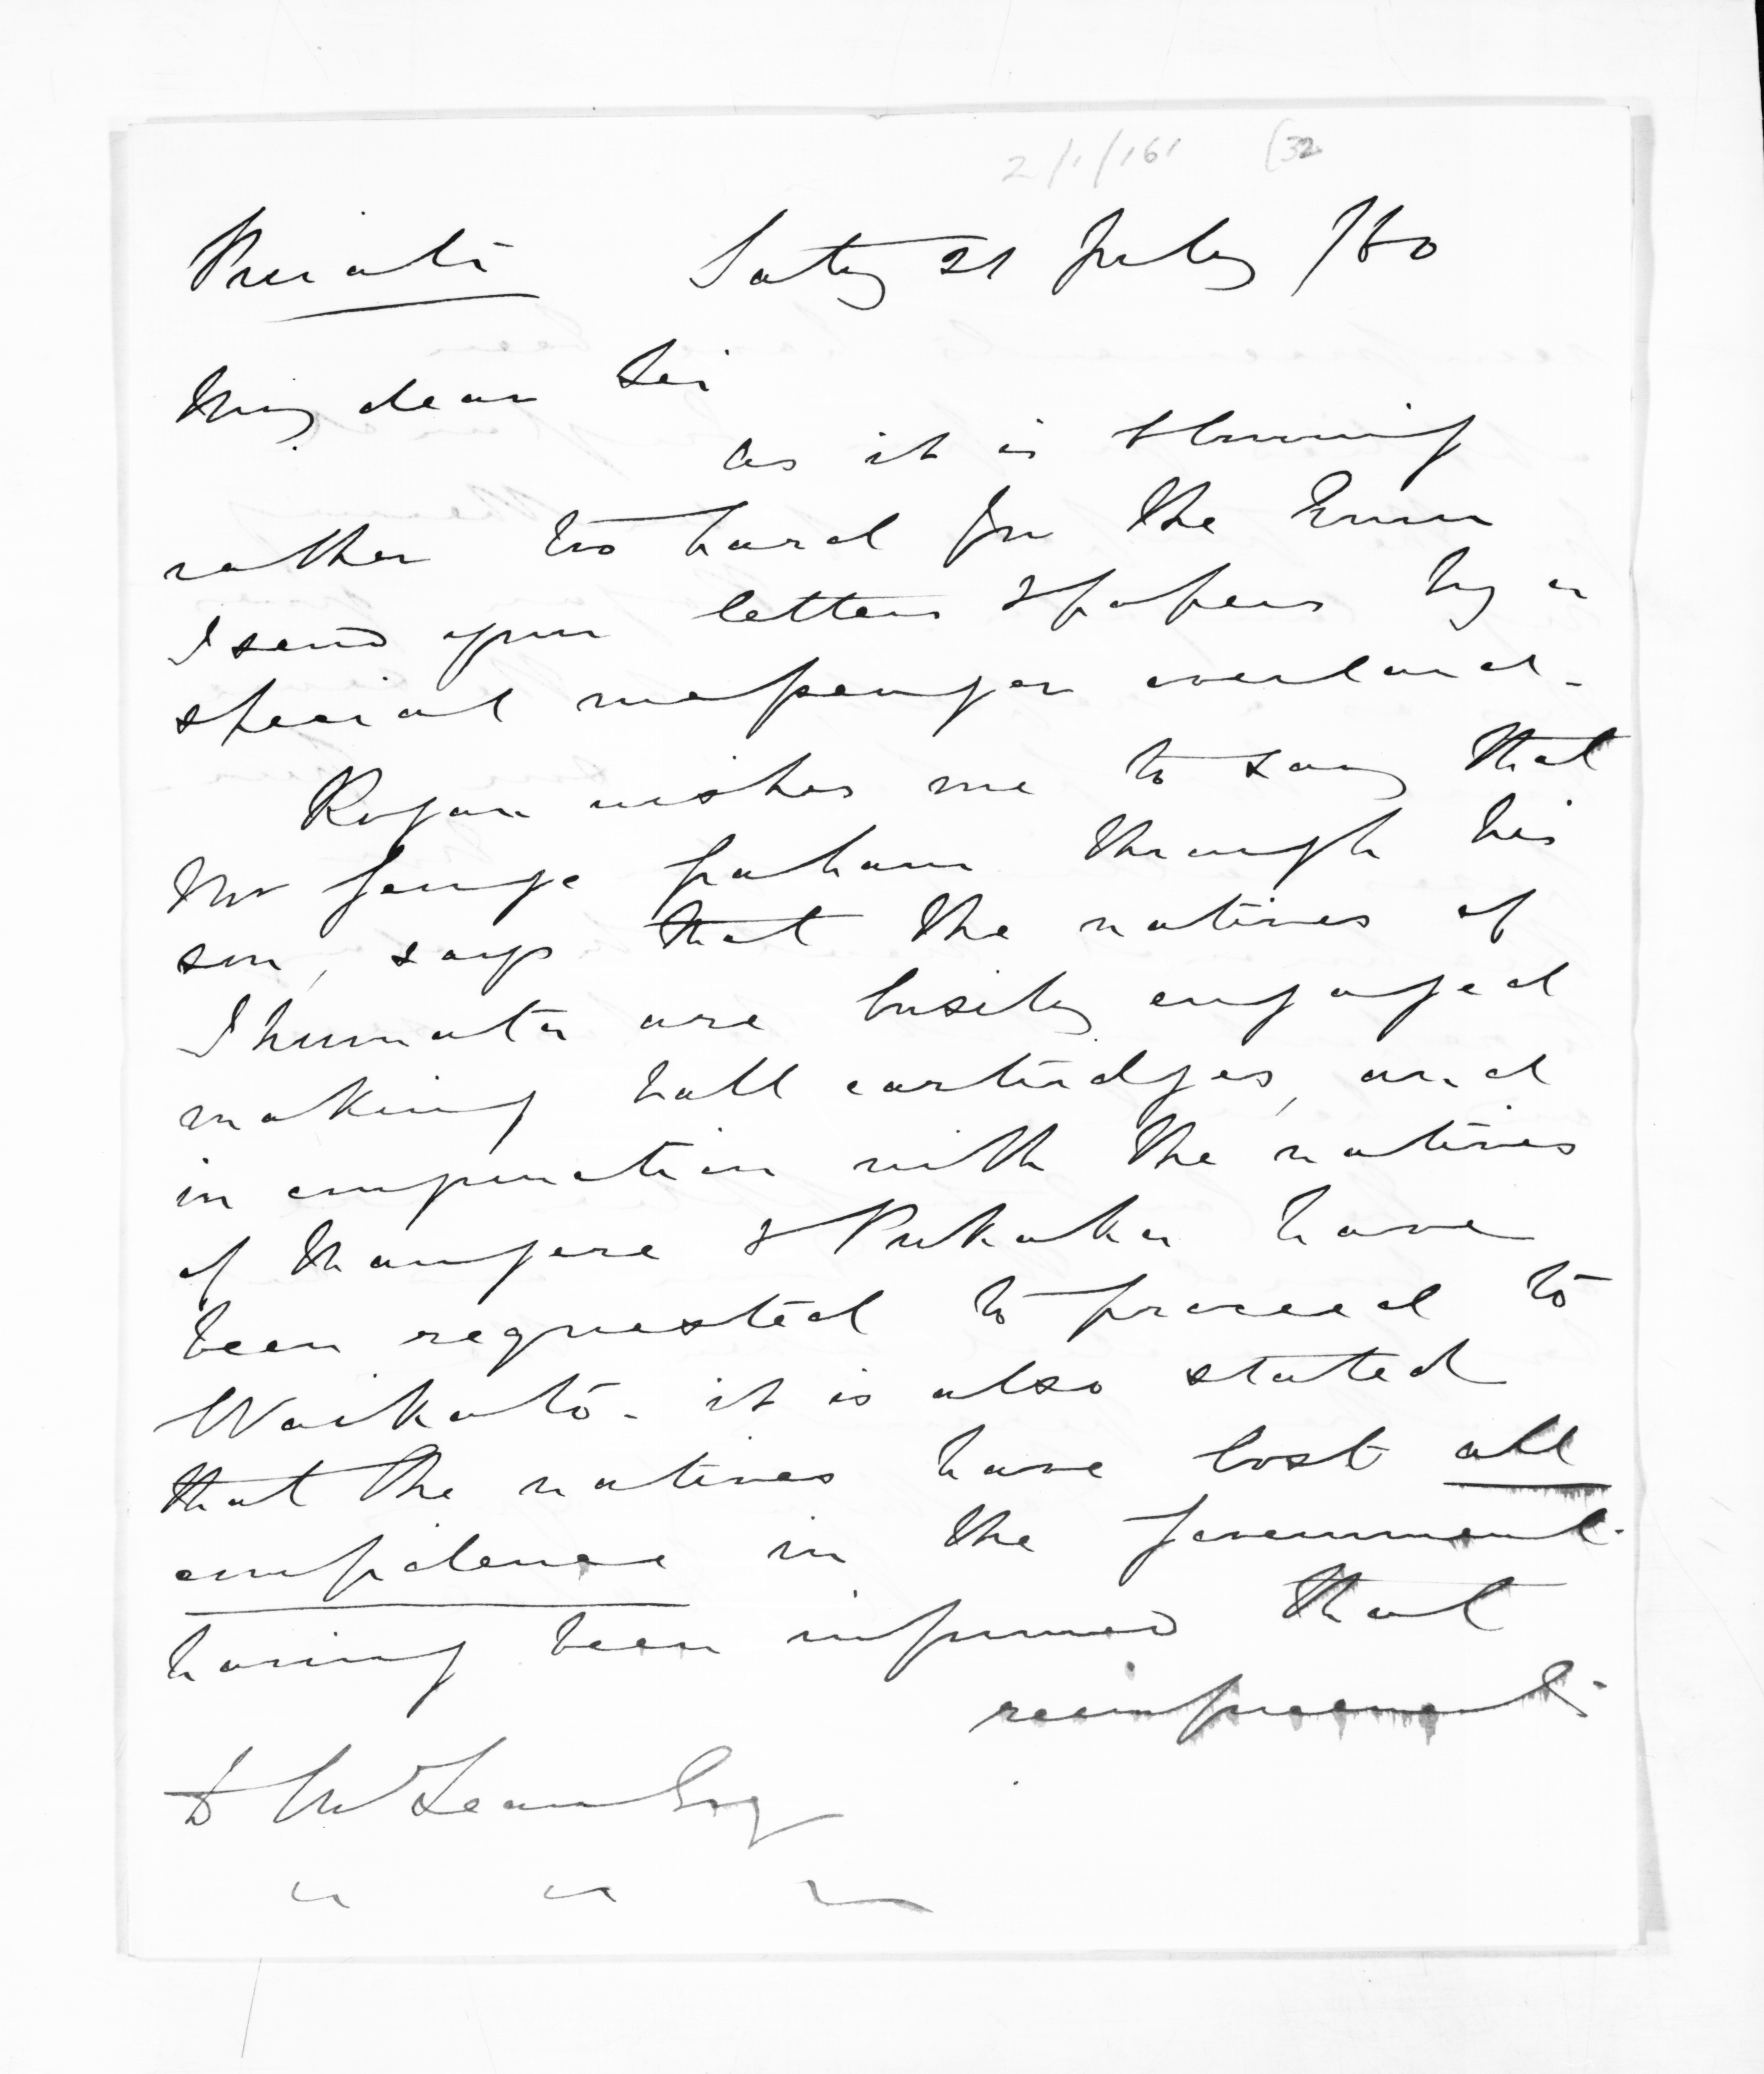 2/1/161 (32
Private Saty 21 July /60
My dear Sir
as it is blowing
rather too hard for the Emma
I send your letters & papers by a
special messenger overland.
Rogan wishes me to say that
Mr George Graham through his
son, says that the natives of
Ihumata are busily engaged
making ball cartridges, and
in conjunction with the natives
of Mangere & Pukaka have
been requested to proceed to
Waikato. it is also stated
that the natives have lost all
confidence in the Government.
having been informed that
reinforcements
D McLean Esq
" " "